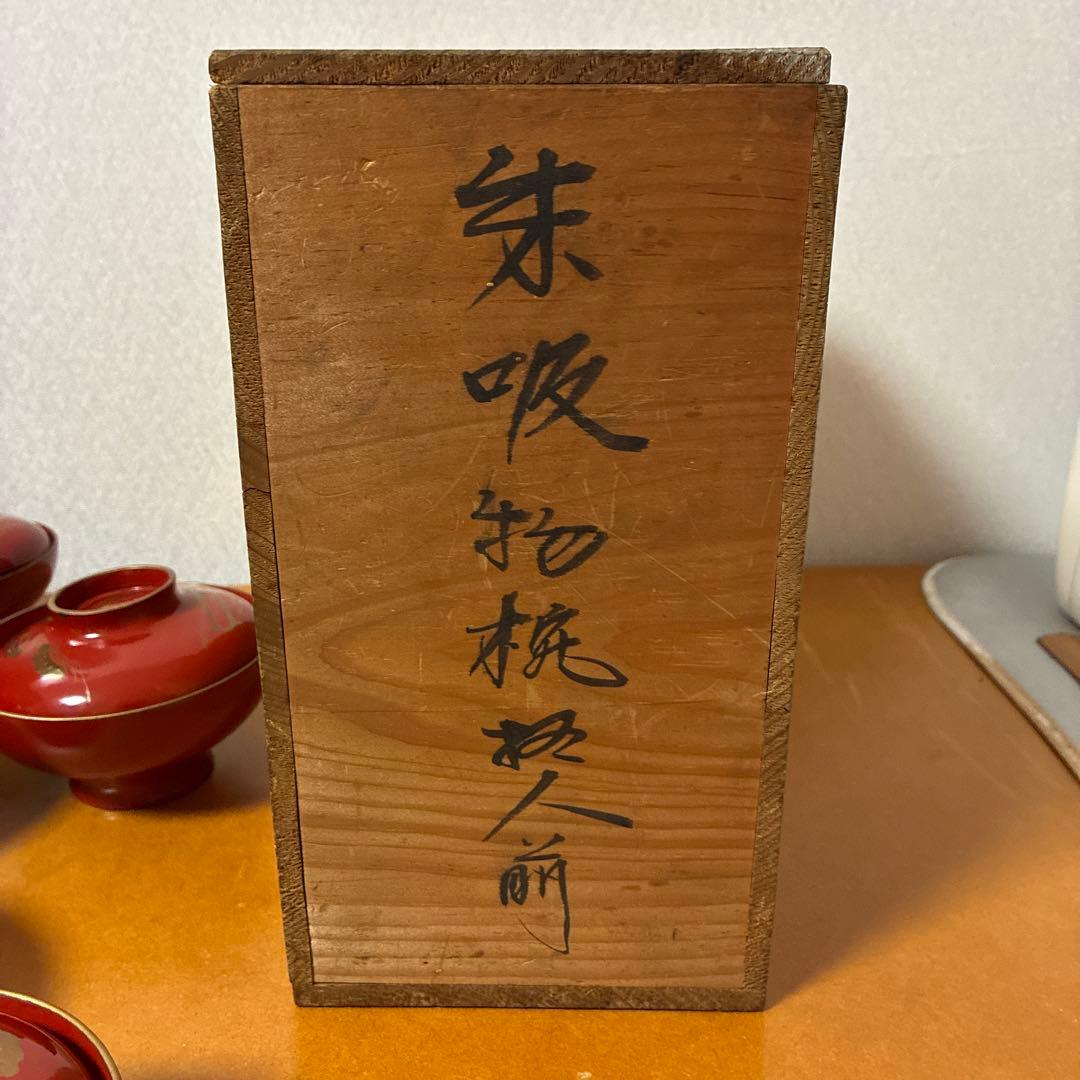 朱吸物椀拾人前